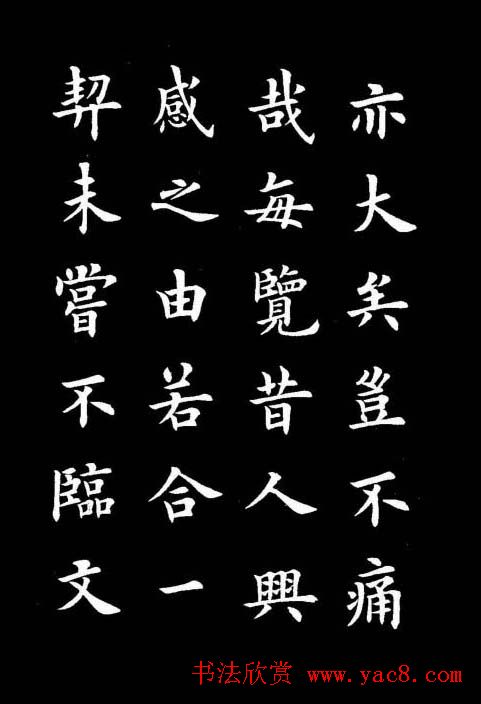 亦大矣豈不痛
哉每覽昔人興
感之由若合一
契未嘗不臨文
书法欣赏 www.yac8.com